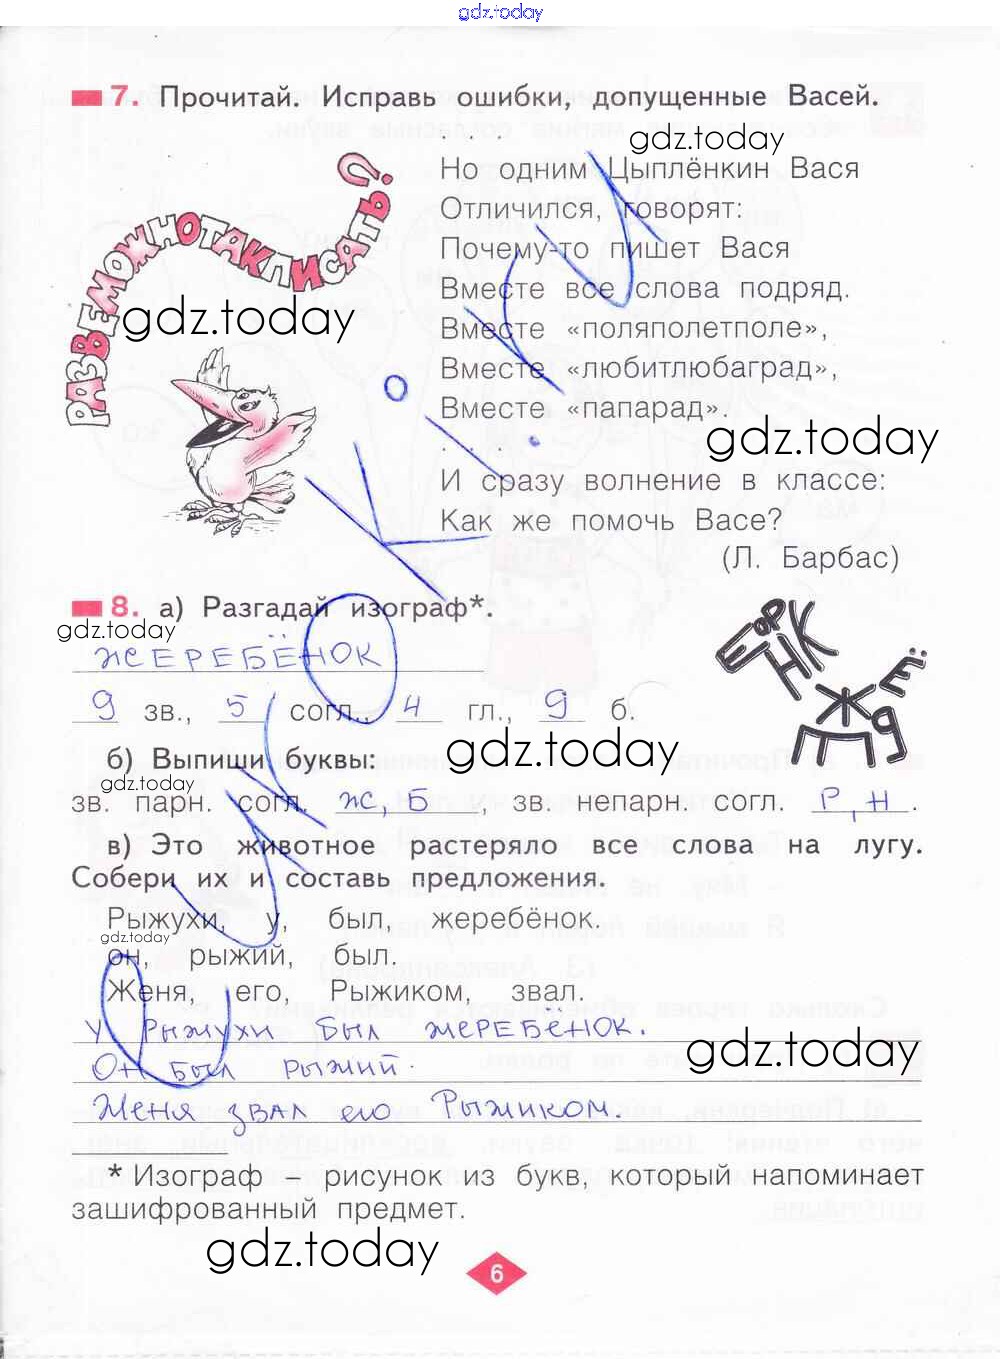 gdz.today
7. Прочитай. Исправь ошибки, допущенные Васей.
. . .
gdz.today
Но одним Цыплёнкин Вася
Отличился, говорят:
Почему-то пишет Вася
Вместе все слова подряд.
Вместе «поляполетполе»,
Вместе «любитлюбаград»,
Вместе «папарад».
. . .
И сразу волнение в классе:
Как же помочь Васе?
(Л. Барбас)
РАЗВЕМОЖНОТАКПИСАТЬ?
gdz.today
gdz.today
8. а) Разгадай изограф*.
gdz.today
ЖЕРЕБЁНОК
9 зв., 5 согл., 4 гл., 9 б.
gdz.today
б) Выпиши буквы:
gdz.today
зв. парн. согл. ж, б, зв. непарн. согл. р, н.
в) Это животное растеряло все слова на лугу.
Собери их и составь предложения.
Рыжухи, у, был, жеребёнок.
gdz.today
он, рыжий, был.
Женя, его, Рыжиком, звал.
У Рыжухи был жеребёнок.
gdz.today
Он был рыжий.
Женя звал его Рыжиком.
* Изограф – рисунок из букв, который напоминает
зашифрованный предмет.
gdz.today
6